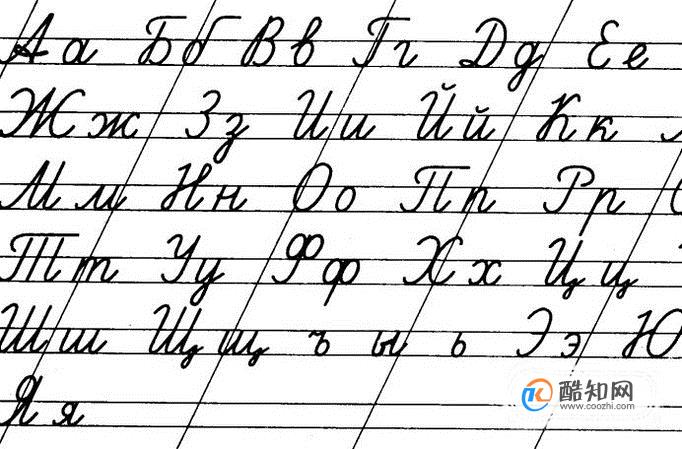 Аа Бб Вв Гг Дд Ее
Жж Зз Ии Йй Кк
Мм Нн Оо Пп Рр
Тт Уу Фф Хх Цц
Шш Щщ ъ ы ь Ээ Ю
Яя
酷知网
www.coozhi.com